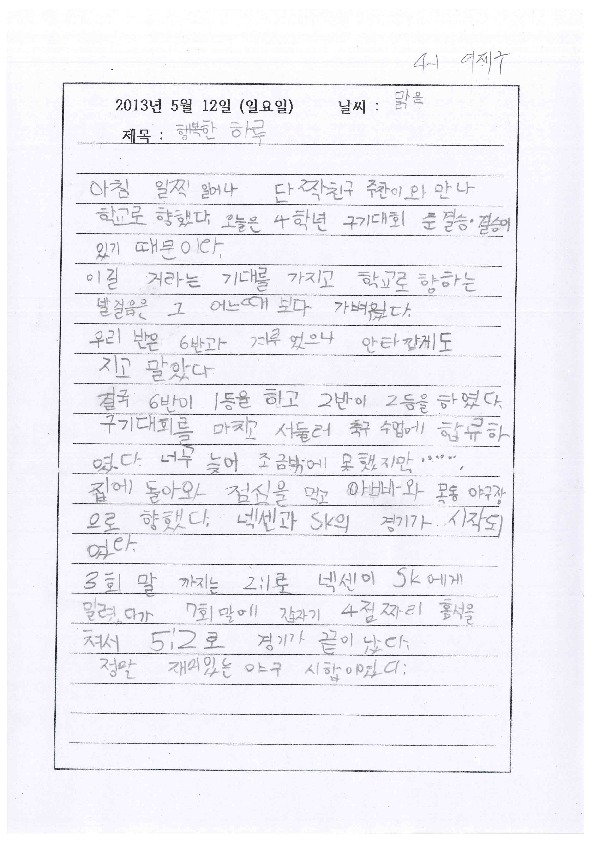 4-1 여제구
2013년 5월 12일 (일요일) 날씨 : 맑음
제목 : 행복한 하루
아침 일찍 일어나 단짝친구 주찬이와 만나
학교로 향했다. 오늘은 4학년 구기대회 준결승·결승이
있기 때문이다.
이길 거라는 기대를 가지고 학교로 향하는
발걸음은 그 어느때 보다 가벼웠다.
우리 반은 6반과 겨루었으나 안타깝게도
지고 말았다
결국 6반이 1등을 하고 2반이 2등을 하였다.
구기대회를 마치고 서둘러 축구 수업에 합류하
였다. 너무 늦어 조금밖에 못했지만 ······.
집에 돌아와 점심을 먹고 아빠와 목동 야구장
으로 향했다. 넥센과 SK의 경기가 시작되
었다.
3회 말 까지는 2:1로 넥센이 SK에게
밀렸다가 7회말에 갑자기 4점짜리 홈런을
쳐서 5:2로 경기가 끝이 났다.
정말 재미있는 야구 시합이였다.